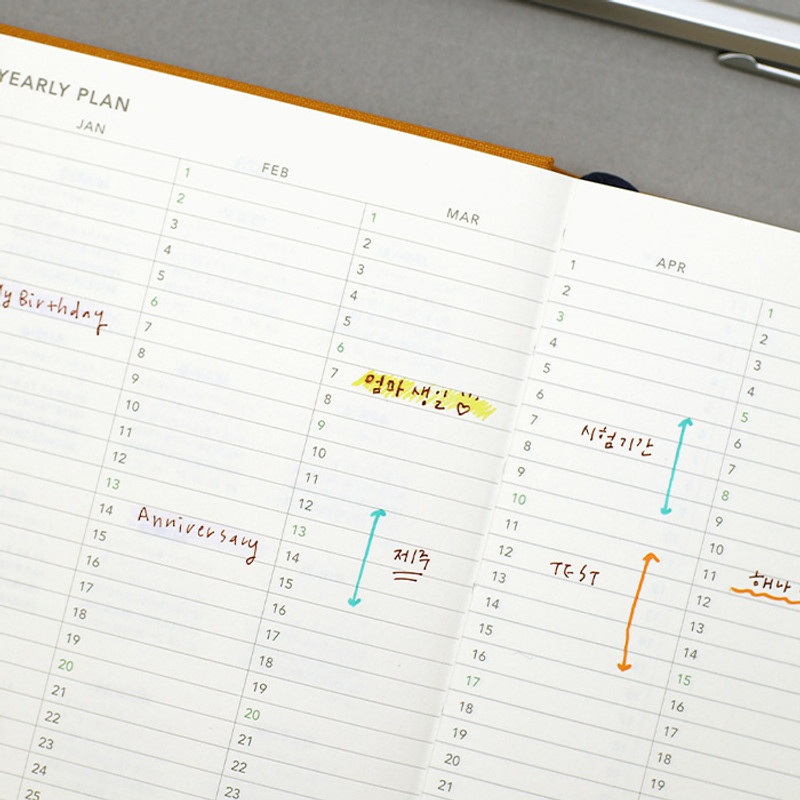 YEARLY PLAN
JAN
My Birthday
FEB
1
2
3
4
5
6
7
8
9
10
11
12
13
14 Anniversary
15
16
17
18
19
20
21
22
23
24
25
MAR
1
2
3
4
5
6
7 엄마 생일 !!! ♡
8
9
10
11
12
13
14 제주
15
16
17
18
19
20
21
22
23
APR
1
2
3
4
5
6
7 시험기간
8
9
10
11
12
13 TEST
14
15
16
17
18
19
20
21
1
2
3
4
5
6
7
8
9
10
11 해나
12
13
14
15
16
17
18
19